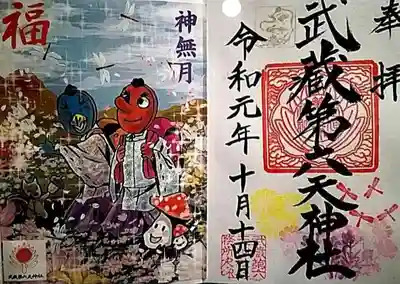 奉拝
武蔵第六天神社
令和元年十月十四日
神無月
福